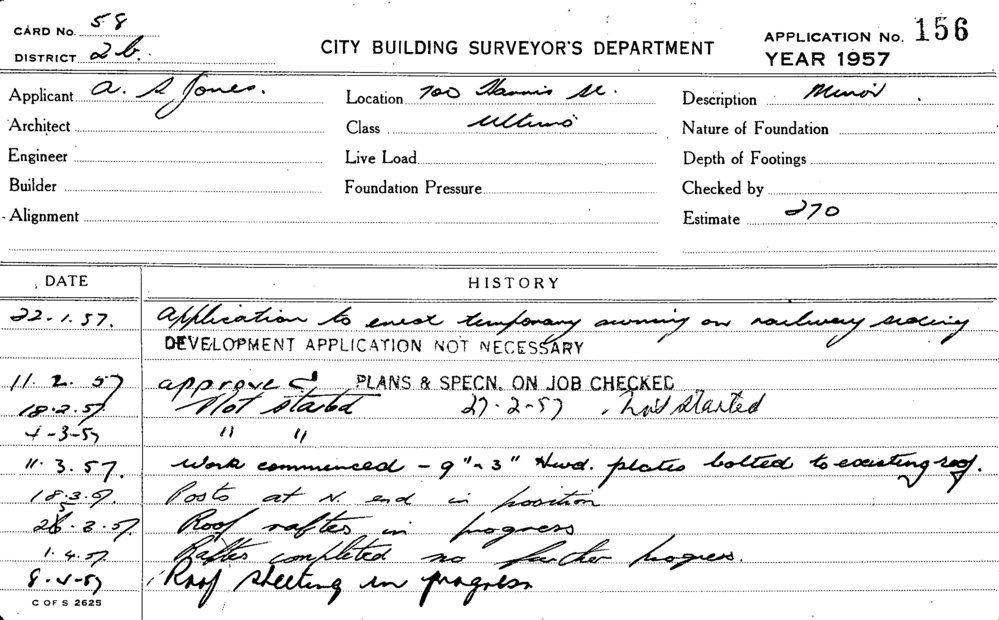 CARD No. 58
DISTRICT 2b.
CITY BUILDING SURVEYOR'S DEPARTMENT
APPLICATION No. 156
YEAR 1957
Applicant A. S Jones. Location 700 Harris St. Description Minor
Architect Class Ultimo Nature of Foundation
Engineer Live Load Depth of Footings
Builder Foundation Pressure Checked by
Alignment Estimate 270
DATE HISTORY
22.1.57. Application to erect temporary awning on railway siding
DEVELOPMENT APPLICATION NOT NECESSARY
11.2.57 approved PLANS & SPECN. ON JOB CHECKED
18.2.57. Not started 27-2-57 Not started
4-3-57 " "
11.3.57. Work commenced - 9" x 3" Hwd. plates bolted to existing roof.
18.3.57. Posts at N. end in position
25.3.57. Roof rafters in progress
1.4.57. Rafters completed no further progress.
8-4-57 Roof sheeting in progress
C OF S 2625